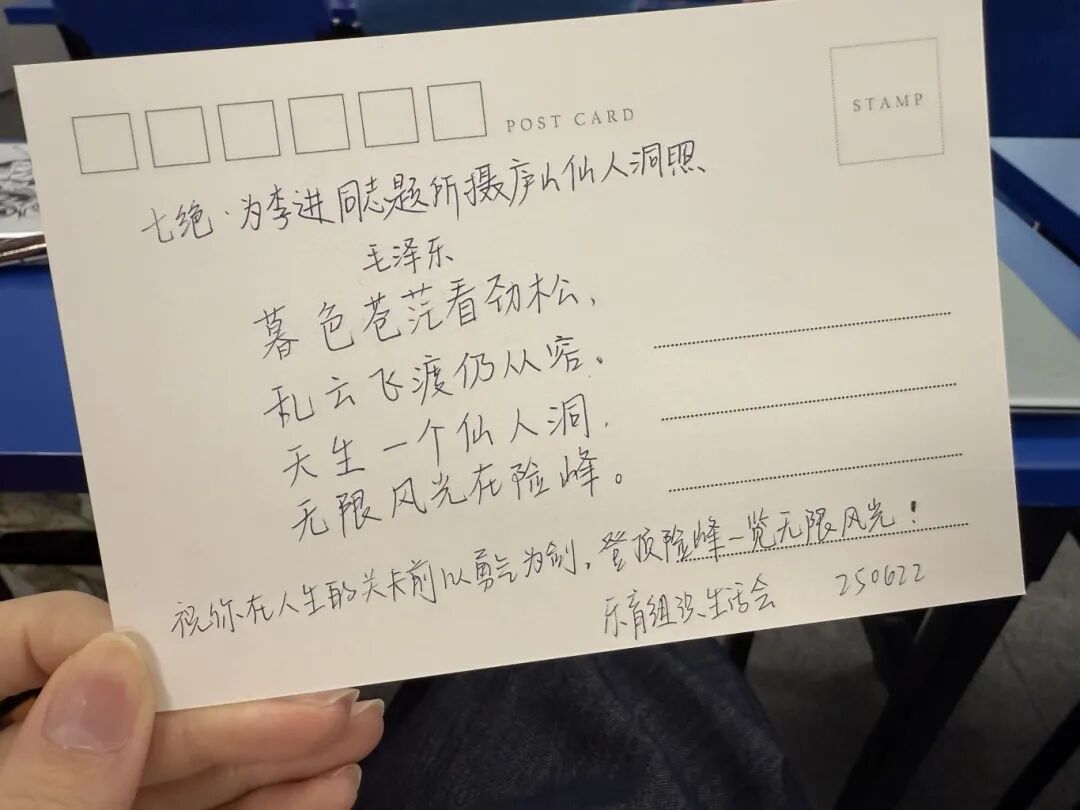 POST CARD
STAMP
七绝·为李进同志题所摄庐山仙人洞照
毛泽东
暮色苍茫看劲松,
乱云飞渡仍从容。
天生一个仙人洞,
无限风光在险峰。
祝你在人生的关卡前以勇气为剑,登顶险峰一览无限风光!
乐育组织生活会 250622